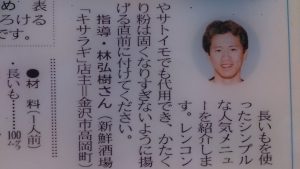 長いもを使
ったシンプル
な人気メニュ
ーを紹介しま
す。レンコン
やサトイモでも代用でき、かたく
り粉は固くなりすぎないように揚
げる直前に付けてください。
指導・林弘樹さん（新鮮酒場
「キサラギ」店主＝金沢市高岡町）
●材料（1人前）
長いも……100㌘
め 表
ろけ
です。